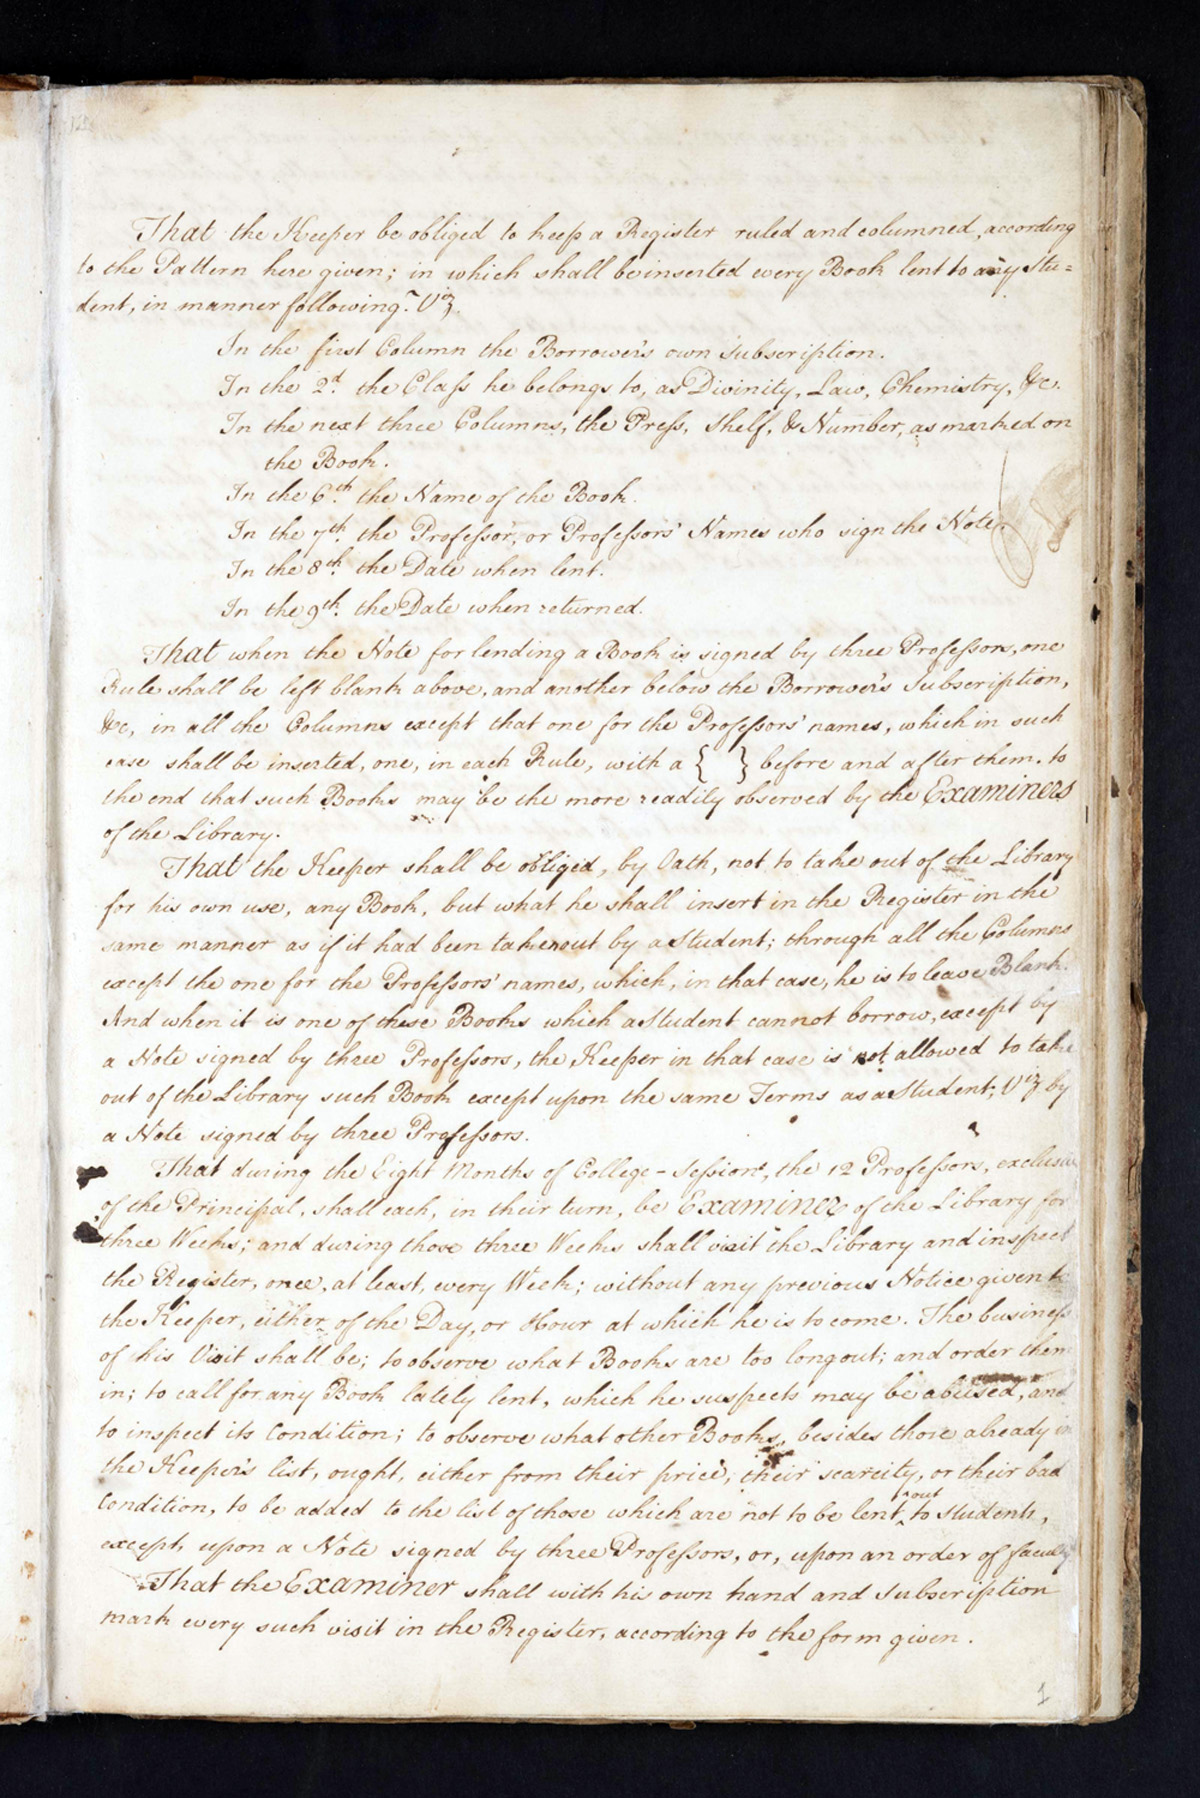 That the Keeper be obliged to keep a Register ruled and columned, according
to the Pattern here given; in which shall be inserted every Book lent to any Stu=
dent, in manner following. Viz.
In the first Column the Borrower's own Subscription.
In the 2d. the Class he belongs to, as Divinity, Law, Chemistry, &c.
In the next three Columns, the Press, Shelf, & Number, as marked on
the Book.
In the 6th. the Name of the Book.
In the 7th. the Professor, or Professors' Names who sign the Note.
In the 8th. the Date when lent.
In the 9th. the Date when returned.
That when the Note for lending a Book is signed by three Professors, one
Rule shall be left blank above, and another below the Borrower's Subscription,
&c, in all the Columns except that one for the Professors' names, which in such
case shall be inserted, one, in each Rule, with a { } before and after them. to
the end that such Books may be the more readily observed by the Examiners
of the Library.
That the Keeper shall be obliged, by Oath, not to take out of the Library
for his own use, any Book, but what he shall insert in the Register in the
same manner as if it had been taken out by a Student; through all the Columns
except the one for the Professors' names, which, in that case, he is to leave Blank.
And when it is one of these Books which a Student cannot borrow, except by
a Note signed by three Professors, the Keeper in that case is not allowed to take
out of the Library such Book except upon the same Terms as a Student; Viz by
a Note signed by three Professors.
That during the Eight Months of College-Session, the 12 Professors, exclusive
of the Principal, shall each, in their turn, be Examiner of the Library for
three Weeks; and during those three Weeks shall visit the Library and inspect
the Register, once, at least, every Week; without any previous Notice given to
the Keeper, either of the Day, or Hour at which he is to come. The business
of his Visit shall be; to observe what Books are too long out; and order them
in; to call for any Book lately lent, which he suspects may be abused, and
to inspect its Condition; to observe what other Books, besides those already in
the Keeper's list, ought, either from their price, their scarcity, or their bad
Condition, to be added to the list of those which are not to be lent out to Students,
except, upon a Note signed by three Professors, or, upon an order of faculty
That the Examiner shall with his own hand and Subscription
mark every such visit in the Register, according to the form given.
1